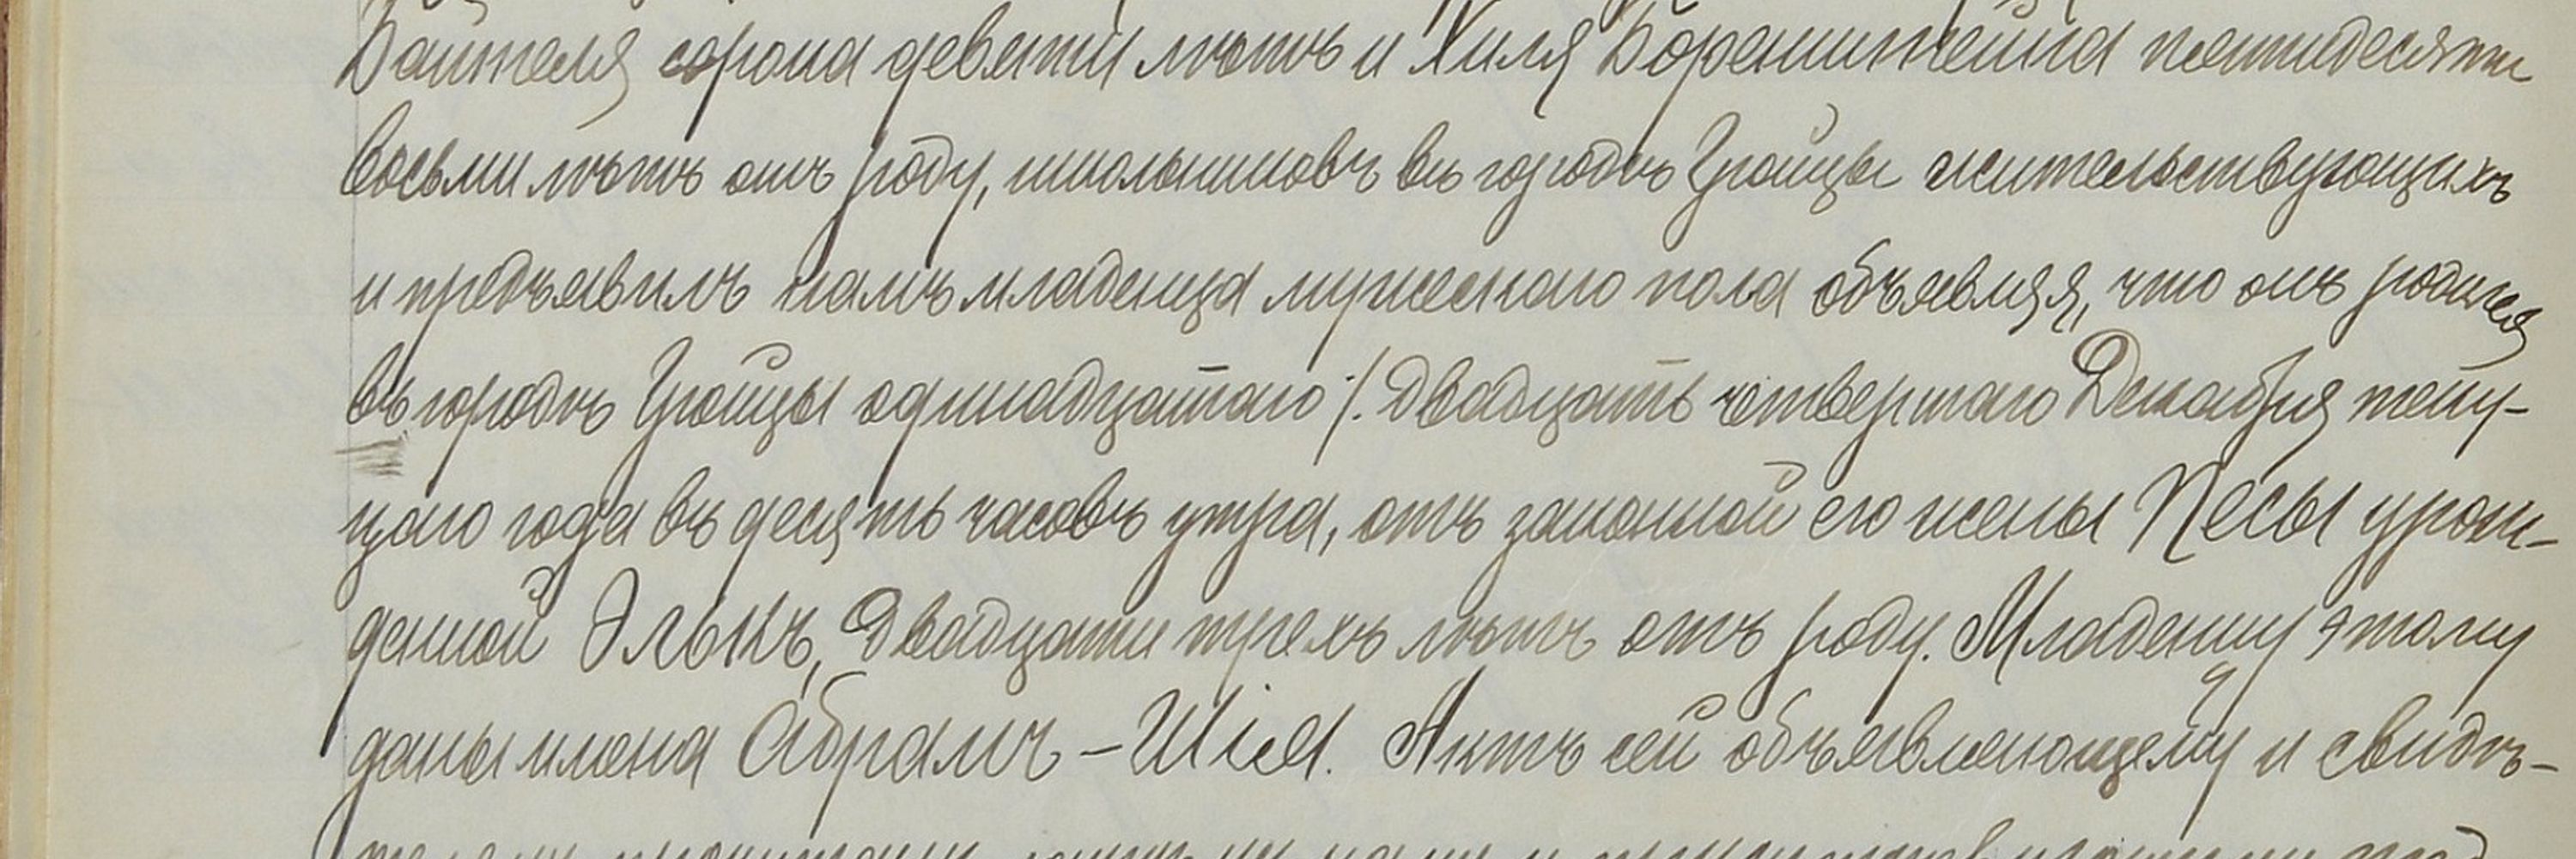 Байтеля сорока девяти лѣтъ и Хиля Боренштейна пятидесяти
восьми лѣтъ отъ роду, школьниковъ въ городѣ Гройцы жительствующихъ
и предъявилъ намъ младенца мужескаго пола объявляя, что онъ родился
въ городѣ Гройцы одинадцатаго /. двадцать четвертаго Декабря теку-
щаго года въ десять часовъ утра, отъ законной его жены Песы урож-
денной Элькъ, двадцати трехъ лѣтъ отъ роду. Младенцу этому
даны имена Абрамъ - Шія. Актъ сей объявляющему и свидѣ-